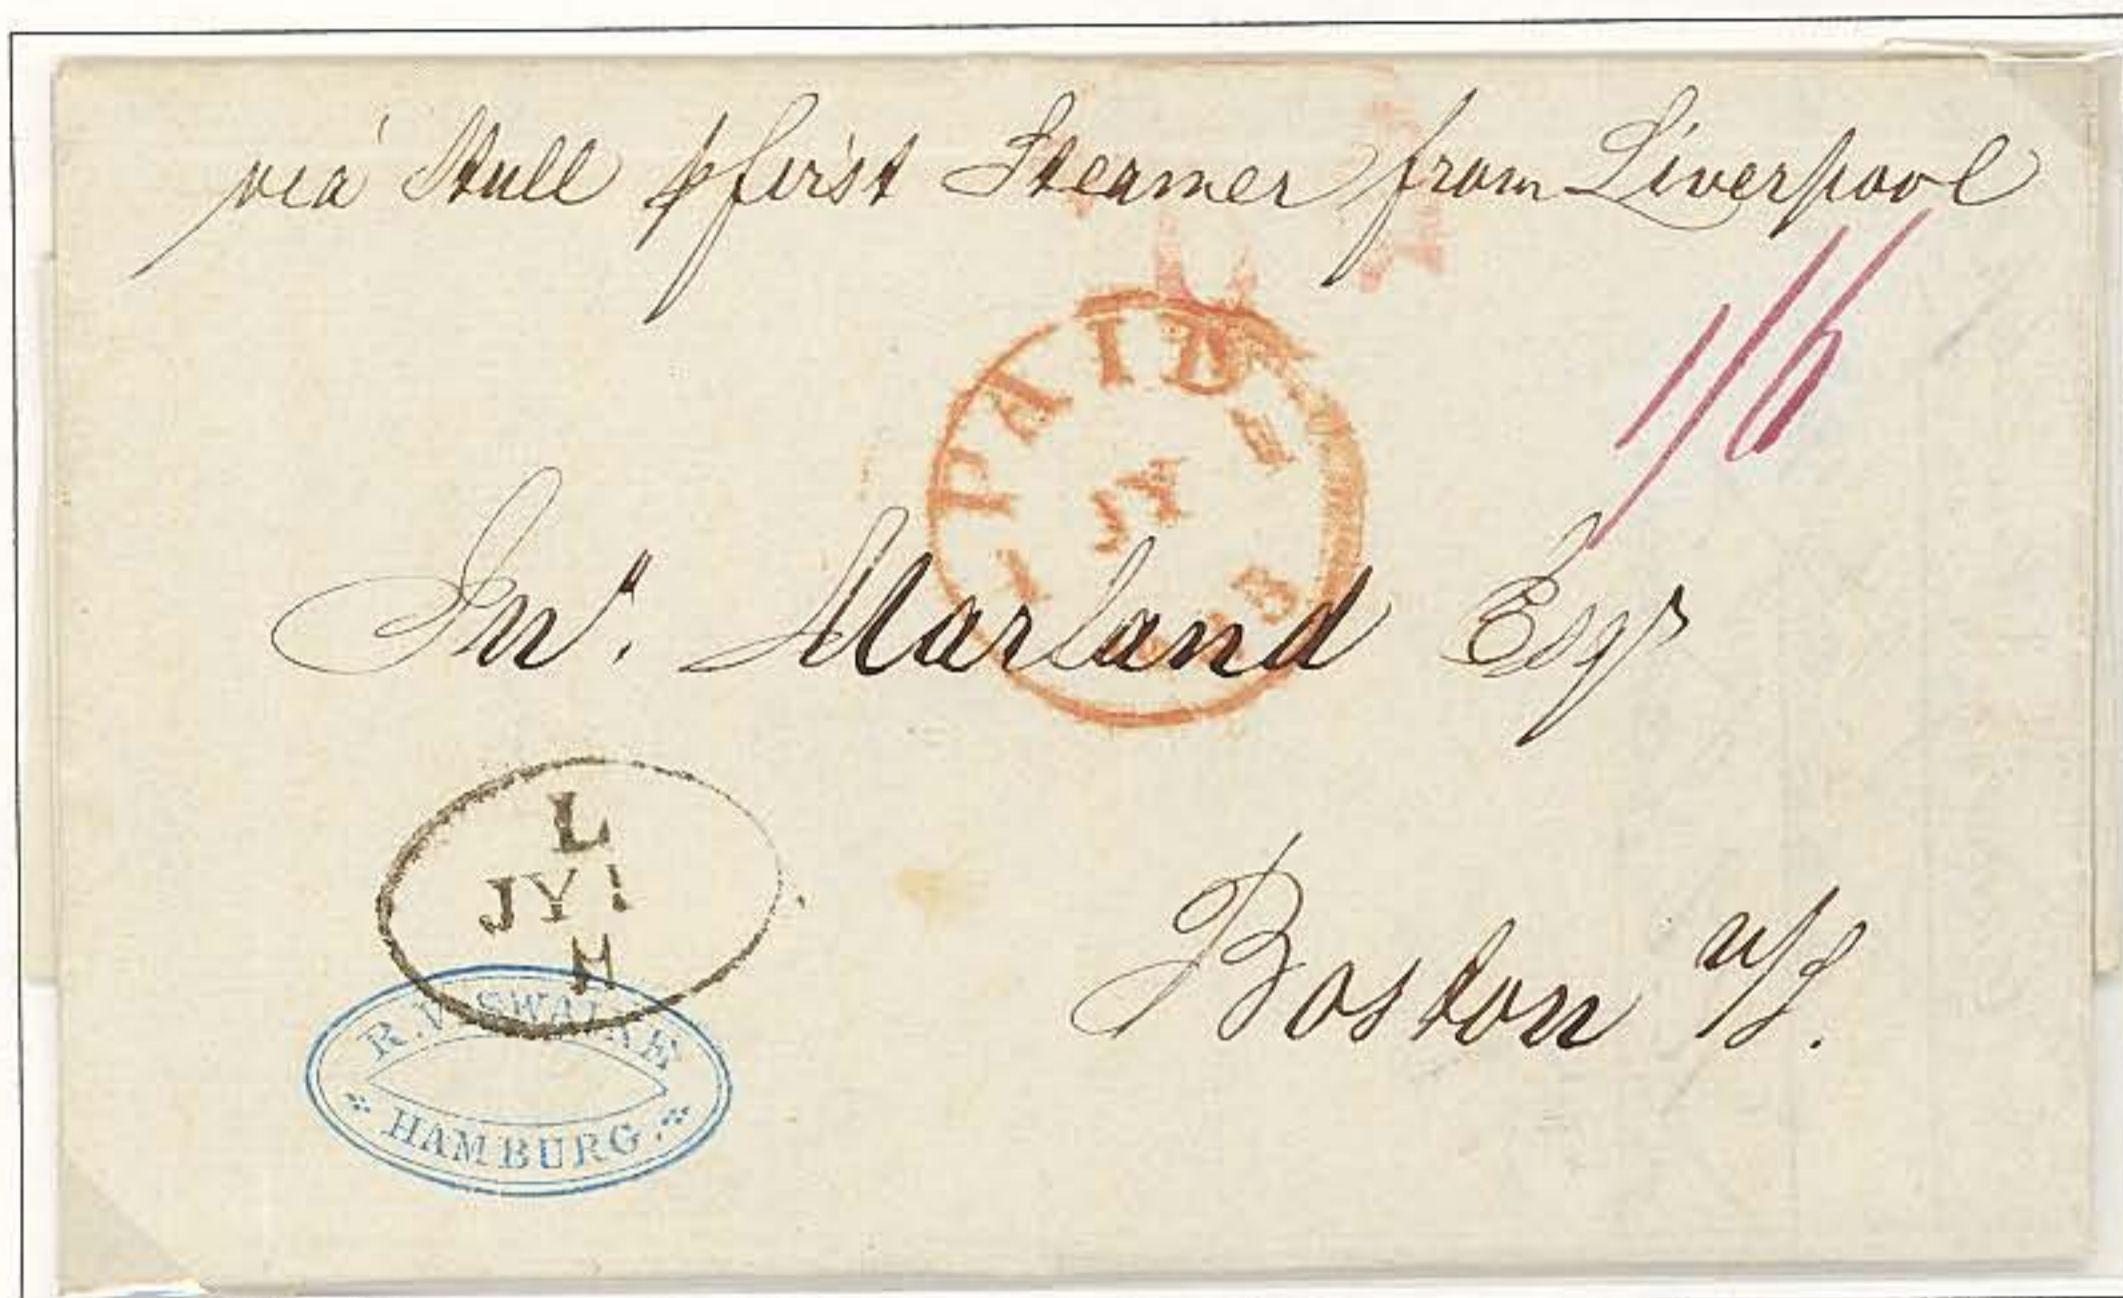 via Hull p first Steamer from Liverpool
1/6
PAID
JY
Jnº. Marland Esqr
L
JY 1
H
Boston u/s.
R.V. SWAINE
HAMBURG.